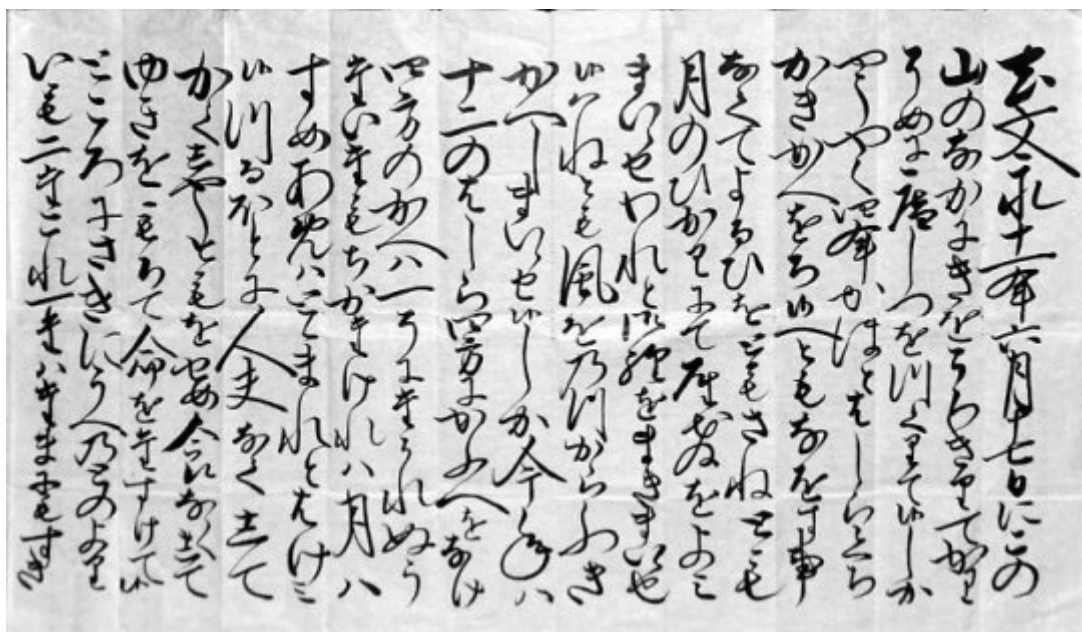 去文永十一年六月十七日にこの
山のなかにきをうちきりてかり
そめに庵しつをつくりて候しか
やうやく四年かほとはしらくち
かきかへをち候へともなをす事
なくてよるひをともさねとも
月のひかりにて聖教をよミ
まいらせわれと御経をまきまいらせ
候はねとも風をのつからふき
かへしまいらせ候しか今年ハ
十二のはしら四方にかふへをなけ
四方のかへハ一そにたうれぬう
たいたもちかたけれハ月ハ
すめあめハとゝまれとはけミ
候つるほとに人夫なくして
かくしやうともをせめ食なくして
ゆきをもちて命をたすけて候
ところにさきにうへのとのより
いも二たこれ一たハたまにもすき